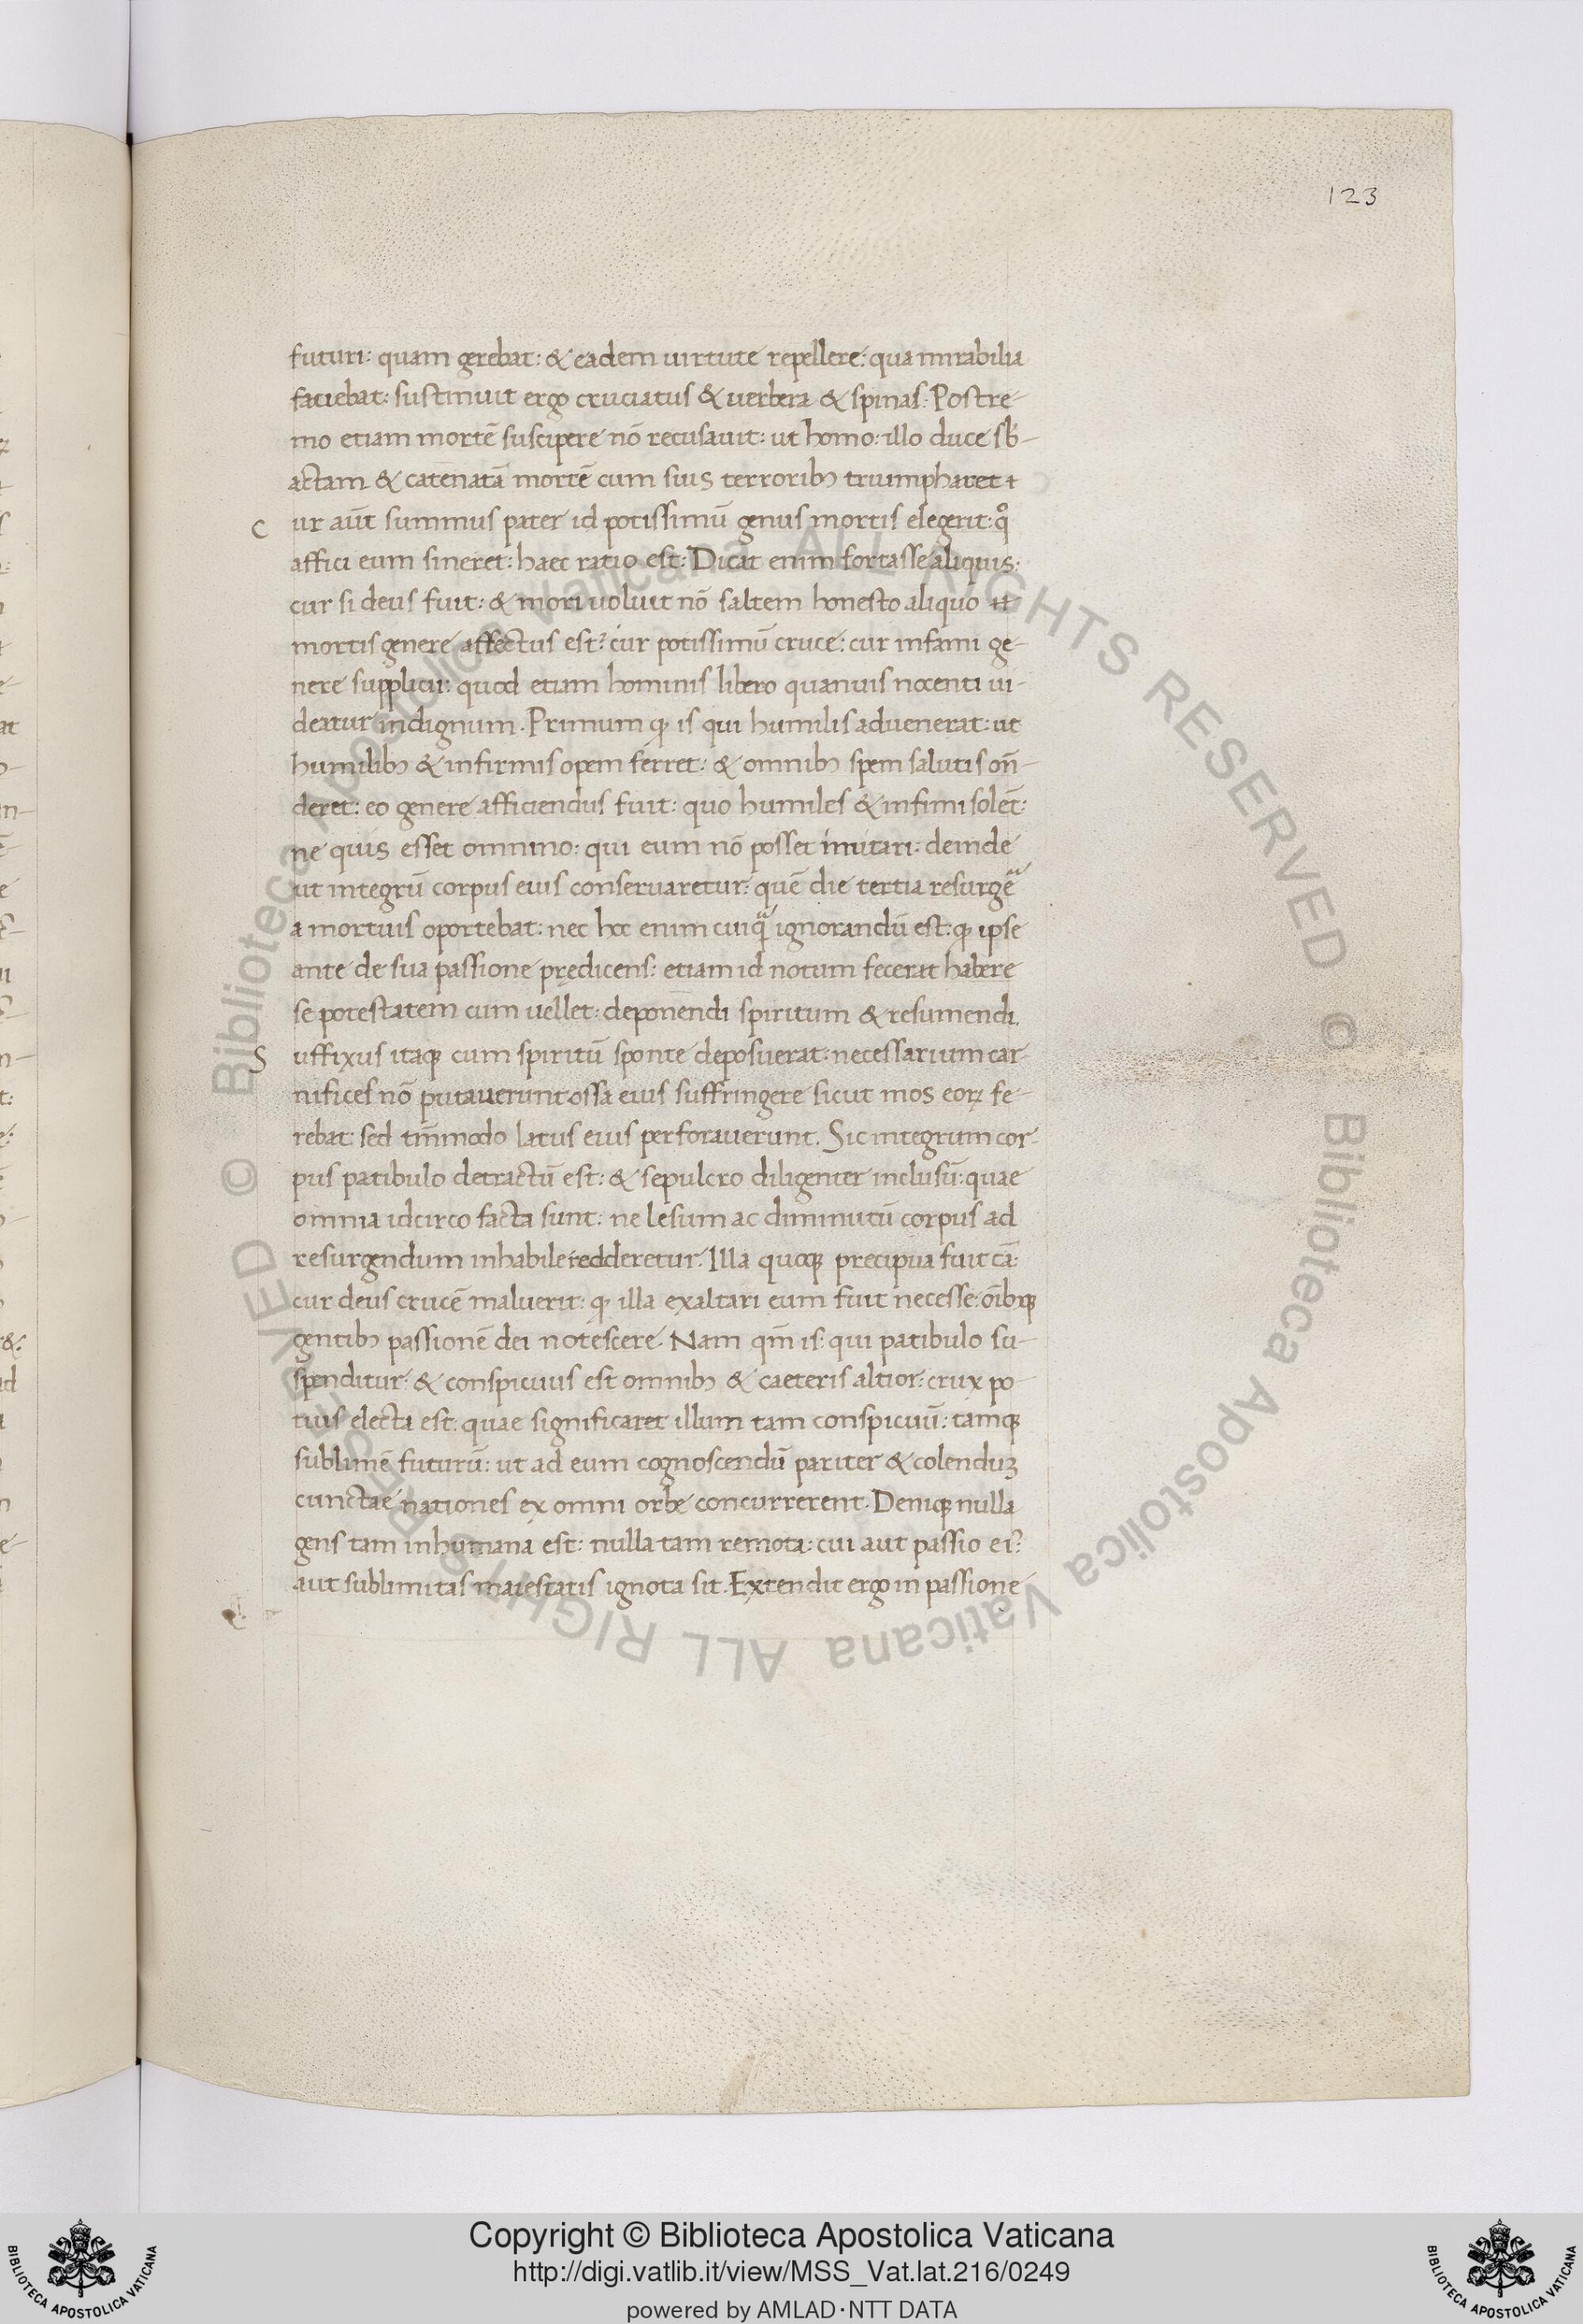 123
futuri: quam gerebat: & eadem uirtute repellere: qua mirabilia
faciebat: sustinuit ergo cruciatus & uerbera & spinas: Postre-
mo etiam mortē suscipere nō recusauit: ut homo: illo duce sb-
actam & catenatā mortē cum suis terroribꝯ triumpharet
C ur aūt summus pater id potissimū genus mortis elegerit: qͦ
affici eum sineret: haec ratio est: Dicat enim fortasse aliquis:
cur si deus fuit: & mori uoluit nō saltem honesto aliquo
mortis genere affectus est? cur potissimū cruce: cur infami ge-
nere supplicii: quod etiam hominis libero quanuis nocenti ui-
deatur indignum. Primum ꝙ is qui humilis aduenerat: ut
humilibꝯ & infirmis opem ferret: & omnibꝯ spem salutis on̄-
deret: eo genere afficiendus fuit: quo humiles & infimi solēt:
ne quis esset omnino: qui eum nō posset imitari: deinde
ut integrū corpus eius conseruaretur: quē die tertia resurgē
a mortuis oportebat: nec hoc enim cuiqᷓ ignorandū est: ꝙ ipse
ante de sua passione prędicens: etiam id notum fecerat habere
se potestatem cum uellet: deponendi spiritum & resumendi.
S uffixus itaqꝫ cum spiritū sponte deposuerat: necessarium car-
nifices nō putauerunt ossa eius suffringere sicut mos eoꝝ fe-
rebat: sed tm̄modo latus eius perforauerunt. Sic integrum cor-
pus patibulo detractū est: & sepulcro diligenter inclusū: quae
omnia idcirco facta sunt: ne lesum ac diminutū corpus ad
resurgendum inhabile redderetur. Illa quoqꝫ precipua fuit cā:
cur deus crucē maluerit: ꝙ illa exaltari eum fuit necesse: oībꝯqꝫ
gentibꝯ passionē dei notescere. Nam qm̄ is: qui patibulo su-
spenditur: & conspicuus est omnibꝯ & caeteris altior: crux po-
tius electa est: quae significaret illum tam conspicuū: tamqꝫ
sublimē futurū: ut ad eum cognoscendū pariter & colenduꝫ
cunctae nationes ex omni orbe concurrerent. Deniqꝫ nulla
gens tam inhumana est: nulla tam remota: cui aut passio eiꝰ
aut sublimitas maiestatis ignota sit. Extendit ergo in passione
© Biblioteca Apostolica Vaticana ALL RIGHTS RESERVED © Biblioteca Apostolica Vaticana ALL RIGHTS RESERVED
Copyright © Biblioteca Apostolica Vaticana
http://digi.vatlib.it/view/MSS_Vat.lat.216/0249
powered by AMLAD·NTT DATA
BIBLIOTECA APOSTOLICA VATICANA
BIBLIOTECA APOSTOLICA VATICANA